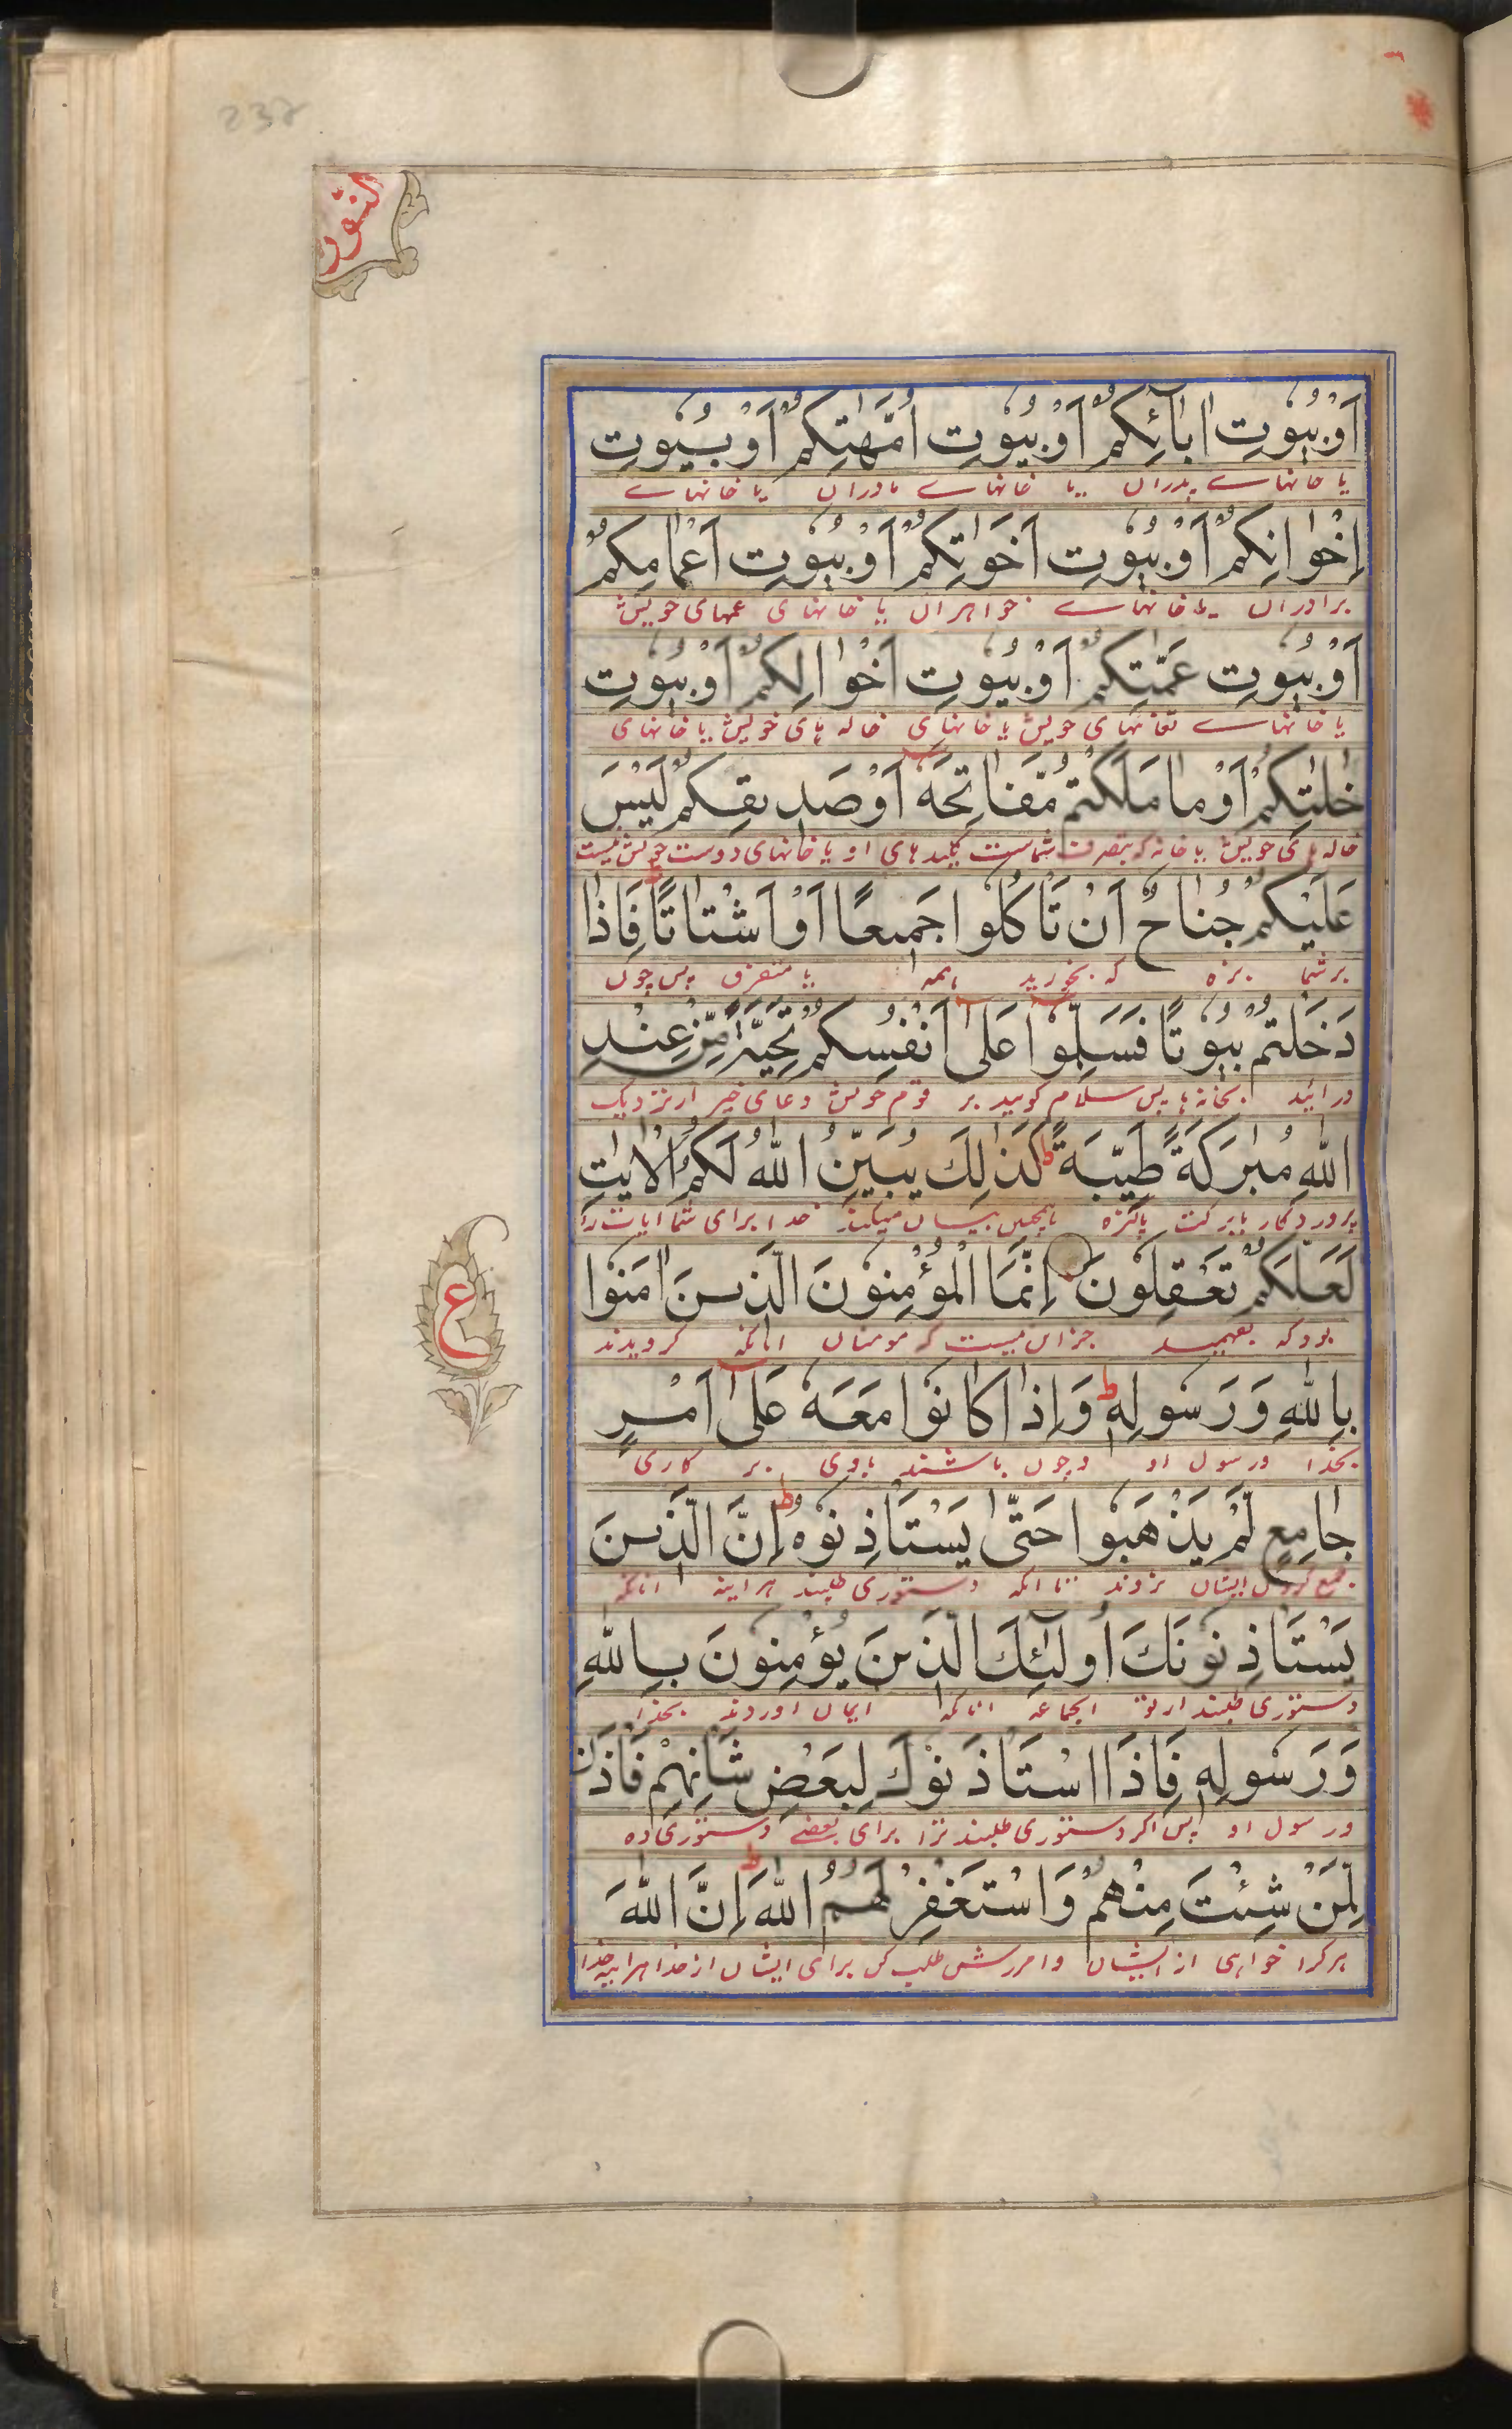 238
النور
اَوْ بُيُوْتِ اٰبَآئِكُمْ اَوْ بُيُوْتِ اُمَّهٰتِكُمْ اَوْ بُيُوْتِ
یا خانهاے پدران یا خانهاے مادران یا خانهاے
اِخْوَانِكُمْ اَوْ بُيُوْتِ اَخَوٰتِكُمْ اَوْ بُيُوْتِ اَعْمَامِكُمْ
برادران یا خانهاے خواهران یا خانهای عمهای خویش
اَوْ بُيُوْتِ عَمّٰتِكُمْ اَوْ بُيُوْتِ اَخْوَالِكُمْ اَوْ بُيُوْتِ
یا خانهاے خویش یا خانهای خاله های خویش یا خانهای
خٰلٰتِكُمْ اَوْ مَا مَلَكْتُمْ مَّفَاتِحَهٗ اَوْ صَدِيْقِكُمْ لَيْسَ
خاله های خویش یا خانه که بتصرف شماست کلیدهای او یا خانهای دوست خویش نیست
عَلَيْكُمْ جُنَاحٌ اَنْ تَاْكُلُوْا جَمِيْعًا اَوْ اَشْتَاتًا ط فَاِذَا
برشما بزه که بخورید همه یا متفرق پس چون
دَخَلْتُمْ بُيُوْتًا فَسَلِّمُوْا عَلٰٓى اَنْفُسِكُمْ تَحِيَّةً مِّنْ عِنْدِ
درائید بخانه ها پس سلام گویید بر قوم خویش دعای خیر از نزدیک
اللّٰهِ مُبٰرَكَةً طَيِّبَةً ط كَذٰلِكَ يُبَيِّنُ اللّٰهُ لَكُمُ الْاٰيٰتِ
پروردگار بابرکت پاکیزه همچنین بیان میکند خدا برای شما ایات را
لَعَلَّكُمْ تَعْقِلُوْنَ اِنَّمَا الْمُؤْمِنُوْنَ الَّذِيْنَ اٰمَنُوْا
بود که بفهمید جز این نیست که مومنان انانکه گرویدند
ع
بِاللّٰهِ وَرَسُوْلِهٖ ط وَاِذَا كَانُوْا مَعَهٗ عَلٰٓى اَمْرٍ
بخدا و رسول او و چون باشند باوی بر کاری
جَامِعٍ لَّمْ يَذْهَبُوْا حَتّٰى يَسْتَاْذِنُوْهُ ط اِنَّ الَّذِيْنَ
جمع کردن ایشان نروند تا انکه دستوری طلبند هراینه انانکه
يَسْتَاْذِنُوْنَكَ اُولٰٓئِكَ الَّذِيْنَ يُؤْمِنُوْنَ بِاللّٰهِ
دستوری طلبند از تو انجماعه انانکه ایمان اوردند بخدا
وَرَسُوْلِهٖ فَاِذَا اسْتَاْذَنُوْكَ لِبَعْضِ شَاْنِهِمْ فَاْذَنْ
و رسول او پس اگر دستوری طلبند ترا برای بعضے دستوری ده
لِّمَنْ شِئْتَ مِنْهُمْ وَاسْتَغْفِرْ لَهُمُ اللّٰهَ ط اِنَّ اللّٰهَ
هرکرا خواهی از ایشان و امرزش طلب کن برای ایشان از خدا هراینه خدا